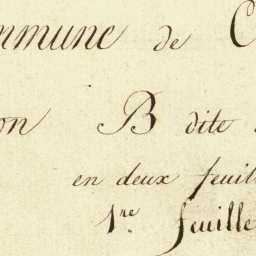 mmune de C
on B dite
en deux feuill
1re feuille